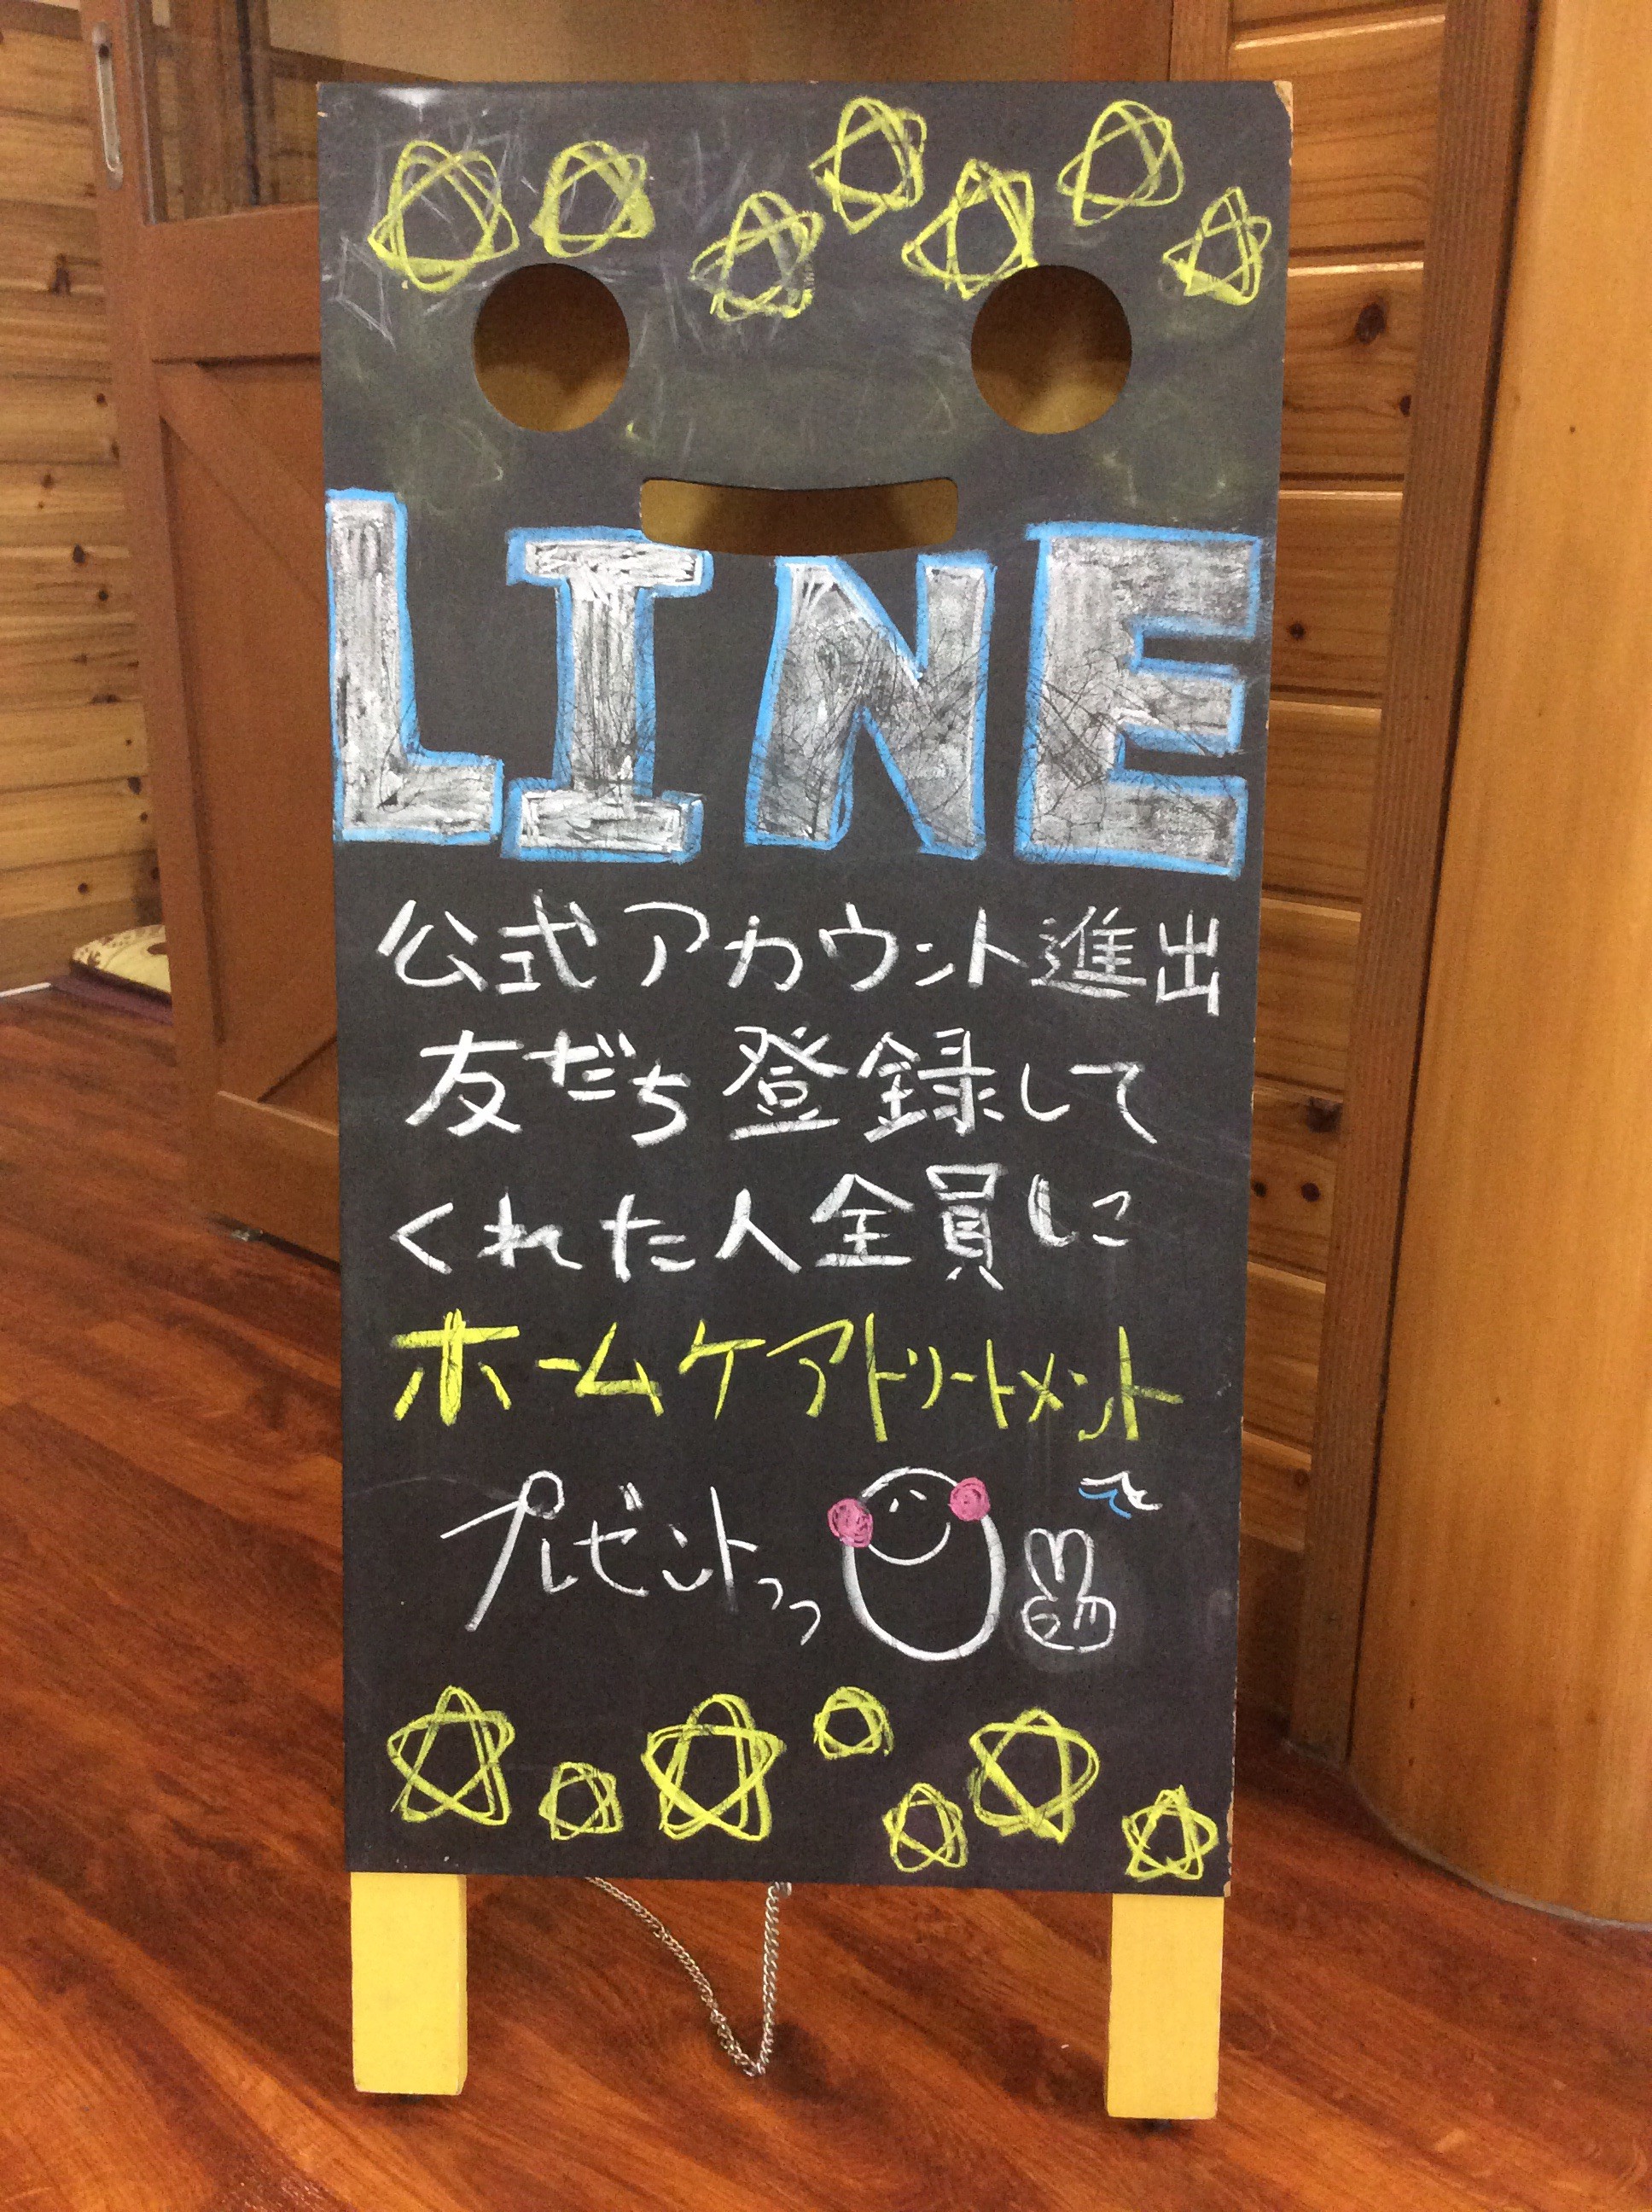 LINE
公式アカウント進出
友だち登録して
くれた人全員に
ホームケアトリートメント
プレゼントっっ